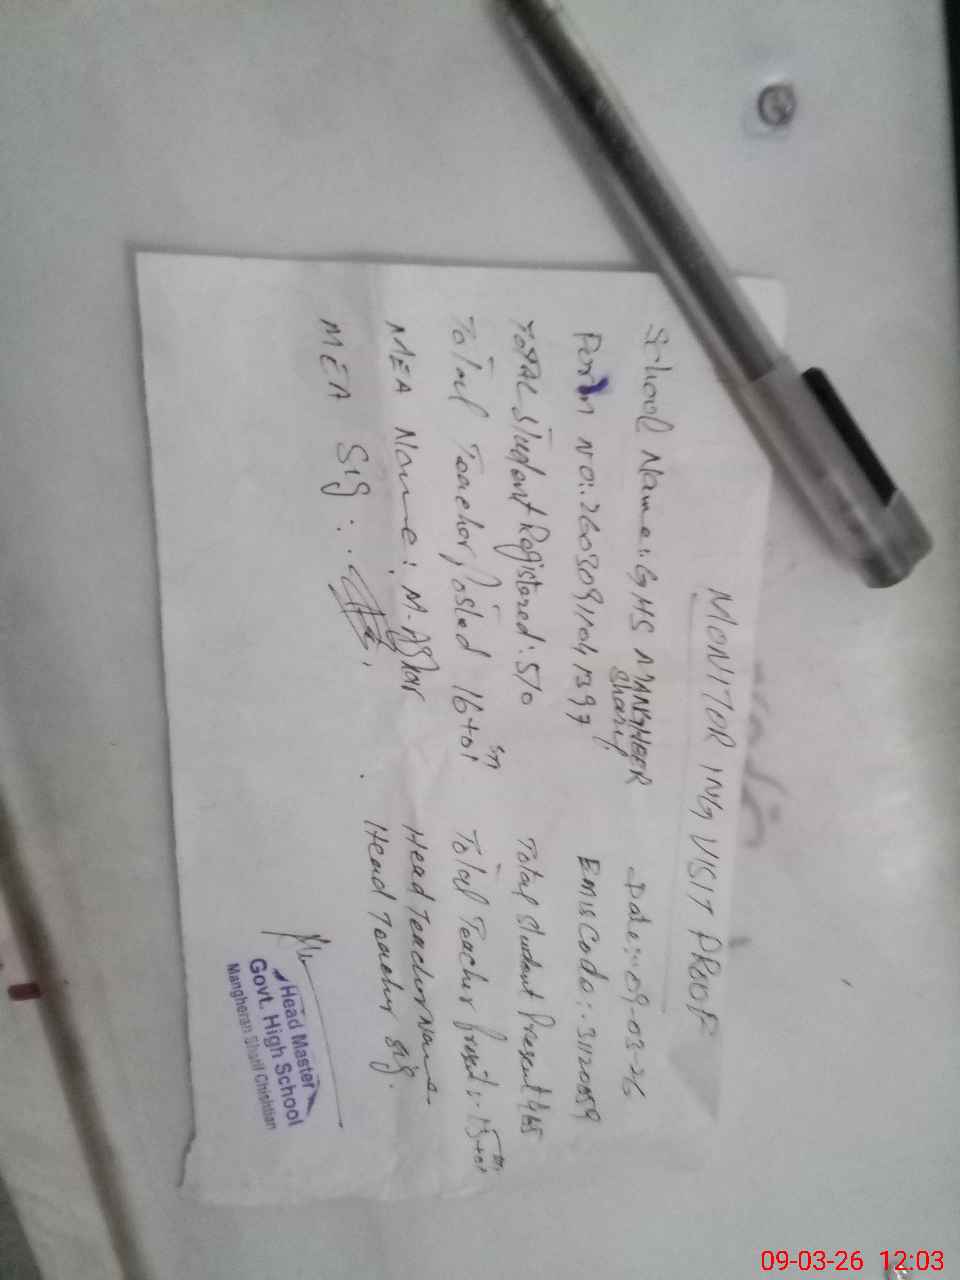 MONITORING VISIT PROOF
School Name:. GHS MANGHEER Sharif Date:. 09-03-26
No:. 26030911041397 Emis Code:.
Total Student Registered: 510 Total Student Present 465
Total Teacher Posted 16+01 Total Teacher Present:- 15+01
MEA Name: M. Head Teacher Name
MEA Sig: Head Teacher Sig.
Head Master
Govt. High School
Mangheran Sharif Chishtian
09-03-26 12:03